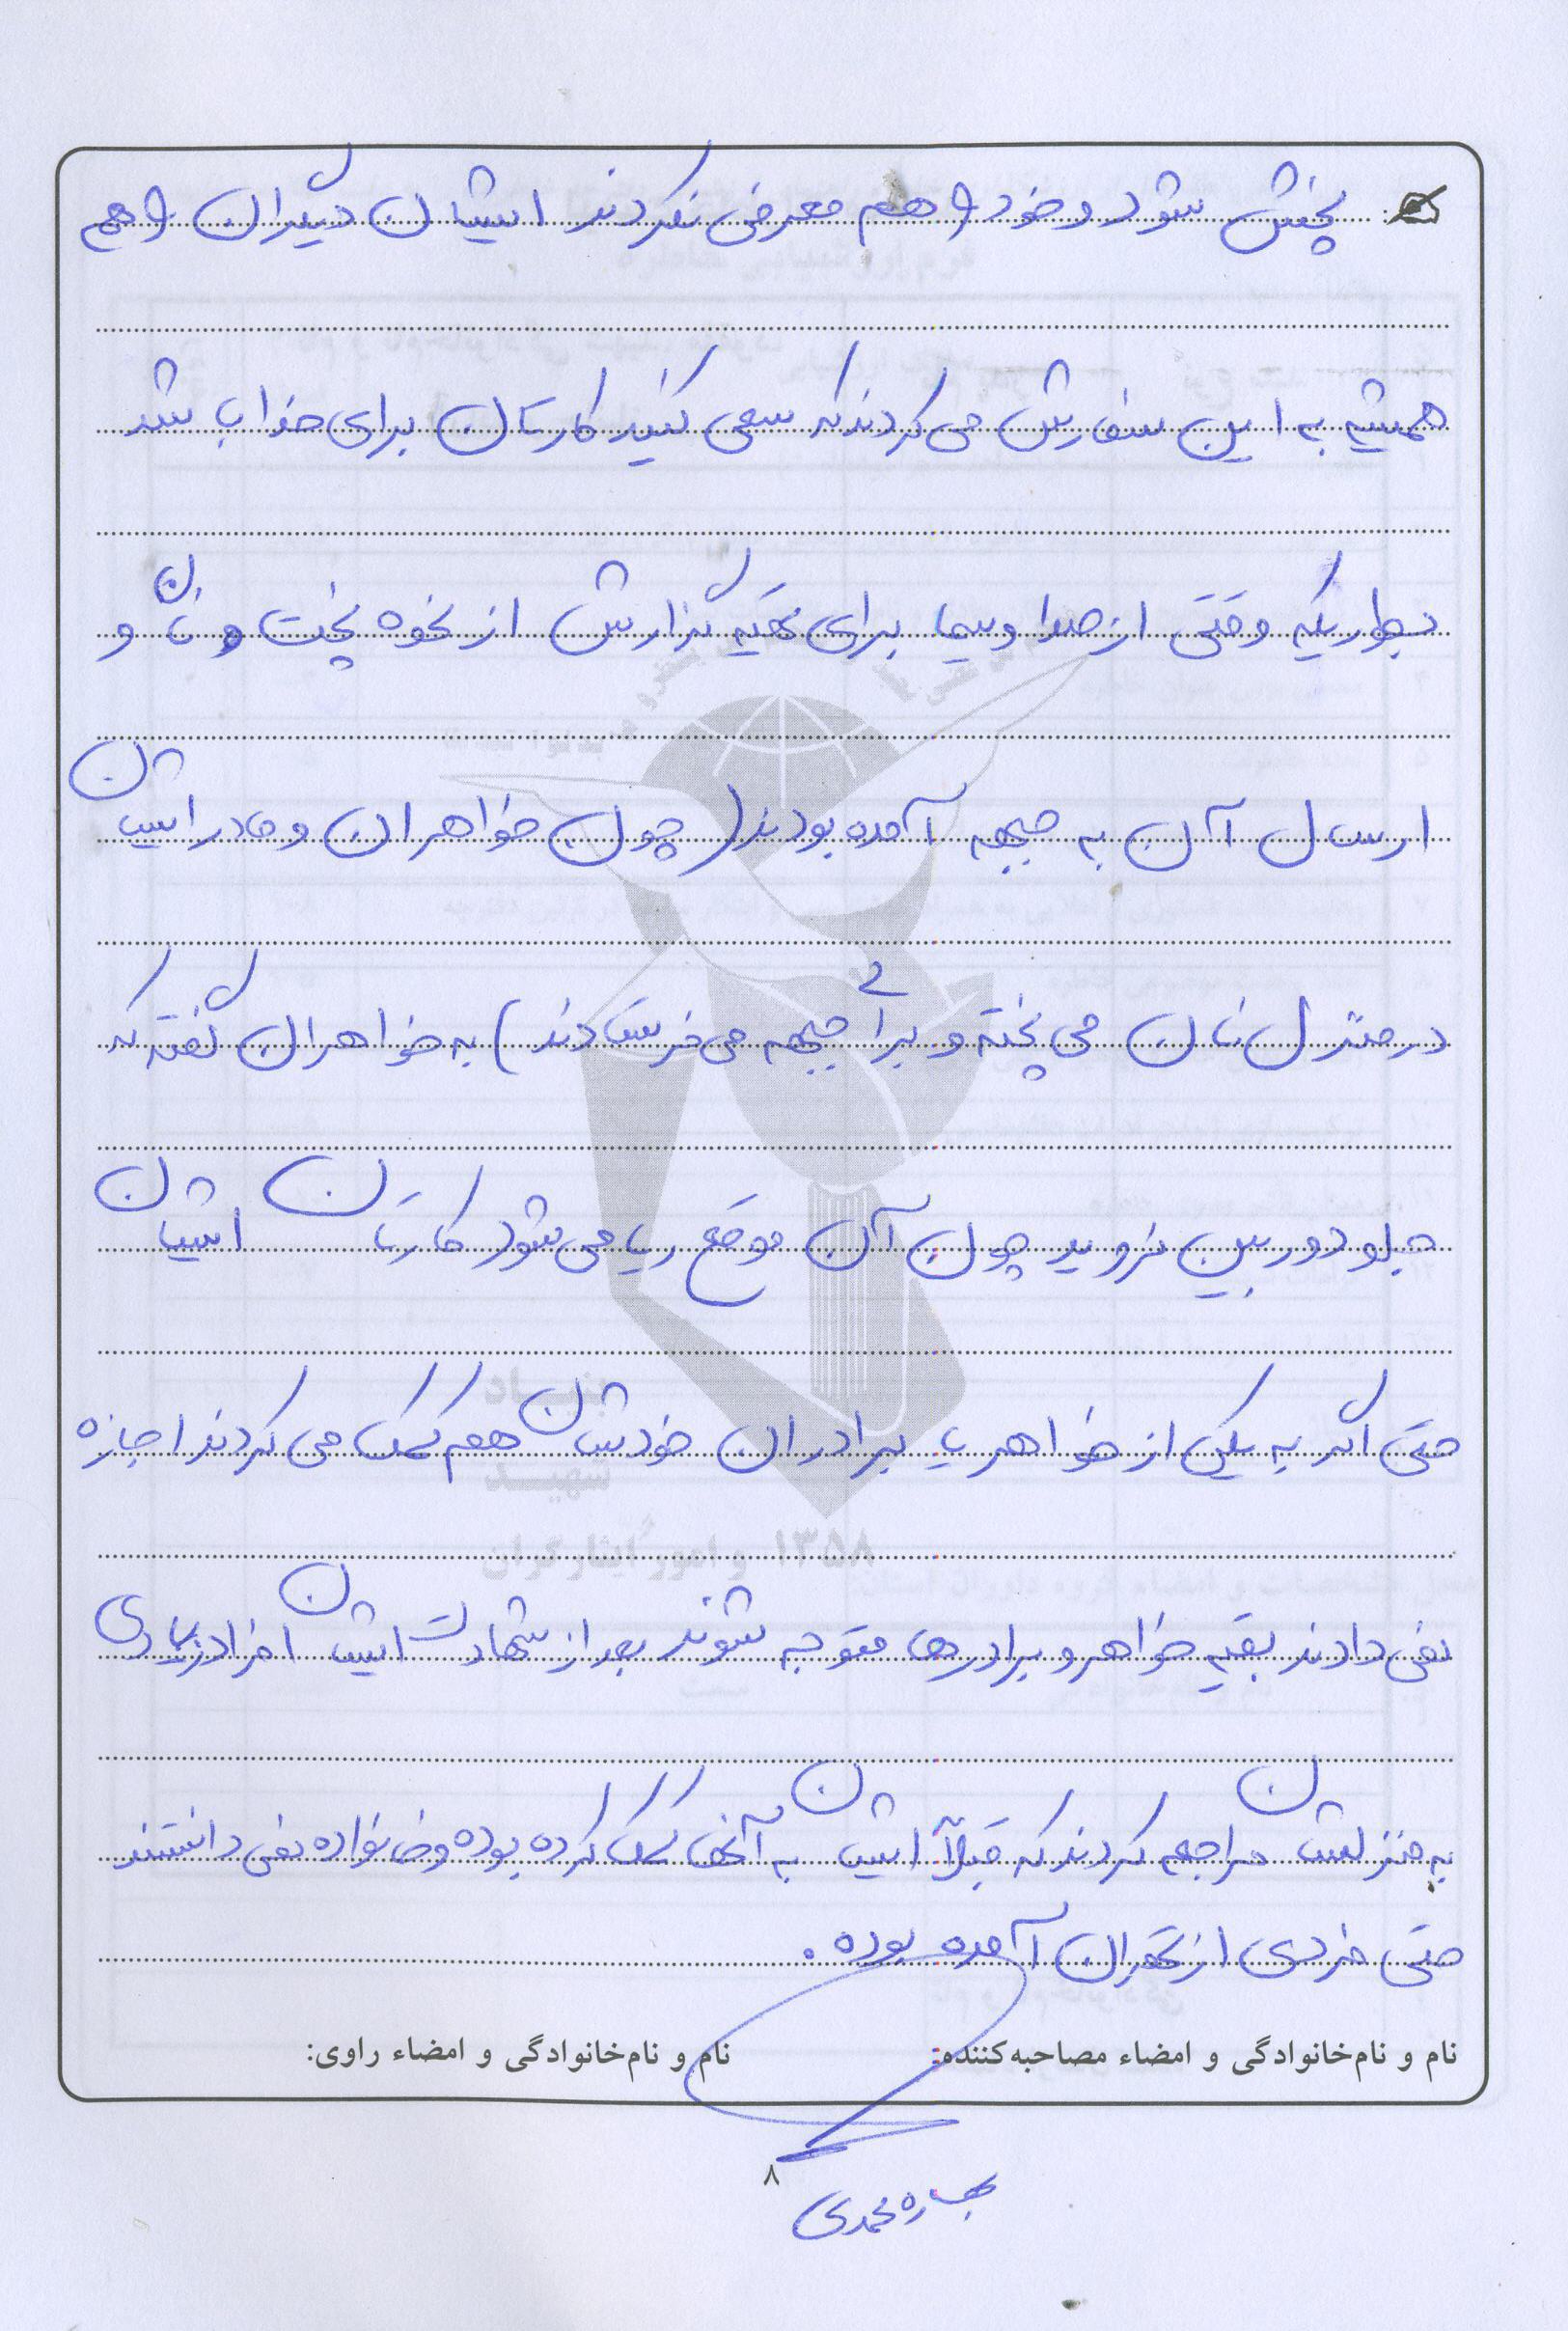 پخش شود و خود را هم معرفی نکردند ایشان دیگران را هم
همیشه به این سفارش می‌کردند که سعی کنید کارتان برای خدا باشد
بطوریکه وقتی از صدا و سیما برای تهیه گزارش از نحوه پخت نان و
ارسال آن به جبهه آمده بودند (چون خواهران و مادر ایشان
در منزل نان می پخته و برای جبهه می فرستادند) به خواهران گفته که
جلو دوربین نروید چون آن موقع ریا می شود کارتان ایشان
حتی اگر به یکی از خواهر یا برادران خودشان هم کمک می کردند اجازه
نمی دادند بقیه خواهر و برادرها متوجه شوند بعد از شهادت ایشان افراد زیادی
به منزلشان مراجعه کردند که قبلاً ایشان به آنها کمک کرده بوده و خانواده نمی دانستند
حتی فردی از تهران آمده بوده.
نام و نام‌خانوادگی و امضاء مصاحبه‌کننده: نام و نام‌خانوادگی و امضاء راوی:
۸
بهاره محمدی
بنیاد
شهید
۱۳۵۸ و امور ایثارگران